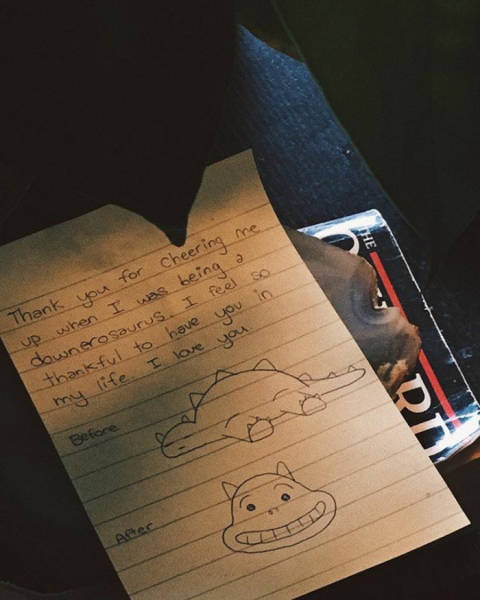 Thank you for cheering me
up when I was being a
downerosaurus. I feel so
thankful to have you in
my life. I love you
Before
After
THE